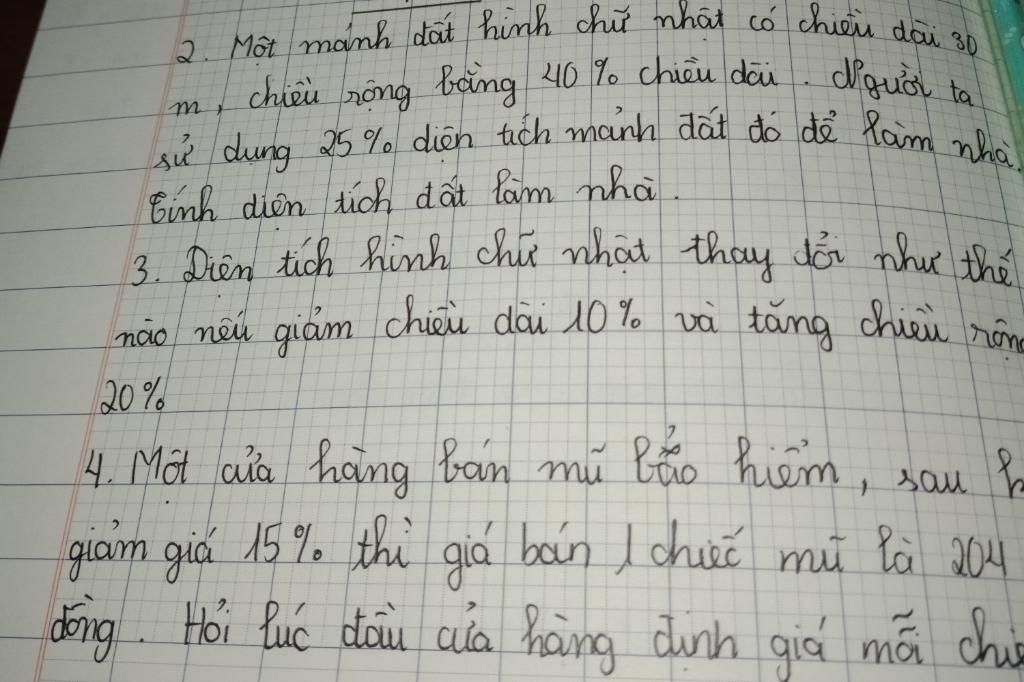 2. Một mảnh đất hình chữ nhật có chiều dài 30
m, chiều rộng bằng 40% chiều dài. Người ta
sử dụng 25% diện tích mảnh đất đó để làm nhà.
Tính diện tích đất làm nhà.
3. Diện tích hình chữ nhật thay đổi như thế
nào nếu giảm chiều dài 10% và tăng chiều rộng
20%
4. Một cửa hàng bán mũ bảo hiểm, sau
giảm giá 15% thì giá bán 1 chiếc mũ là 204
đồng. Hỏi lúc đầu cửa hàng định giá mỗi